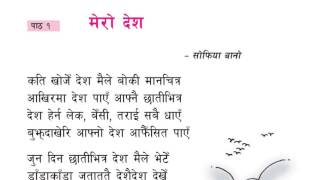 पाठ १
मेरो देश
– सोफिया बानो
कति खोजेँ देश मैले बोकी मानचित्र
आखिरमा देश पाएँ आफ्नै छातीभित्र
देश हेर्न लेक, बेँसी, तराई सबै धाएँ
बुझ्दाखेरि आफ्नो देश आफैँसित पाएँ
जुन दिन छातीभित्र देश मैले भेटेँ
डाँडाकाँडा जताततै देशैदेश देखेँ